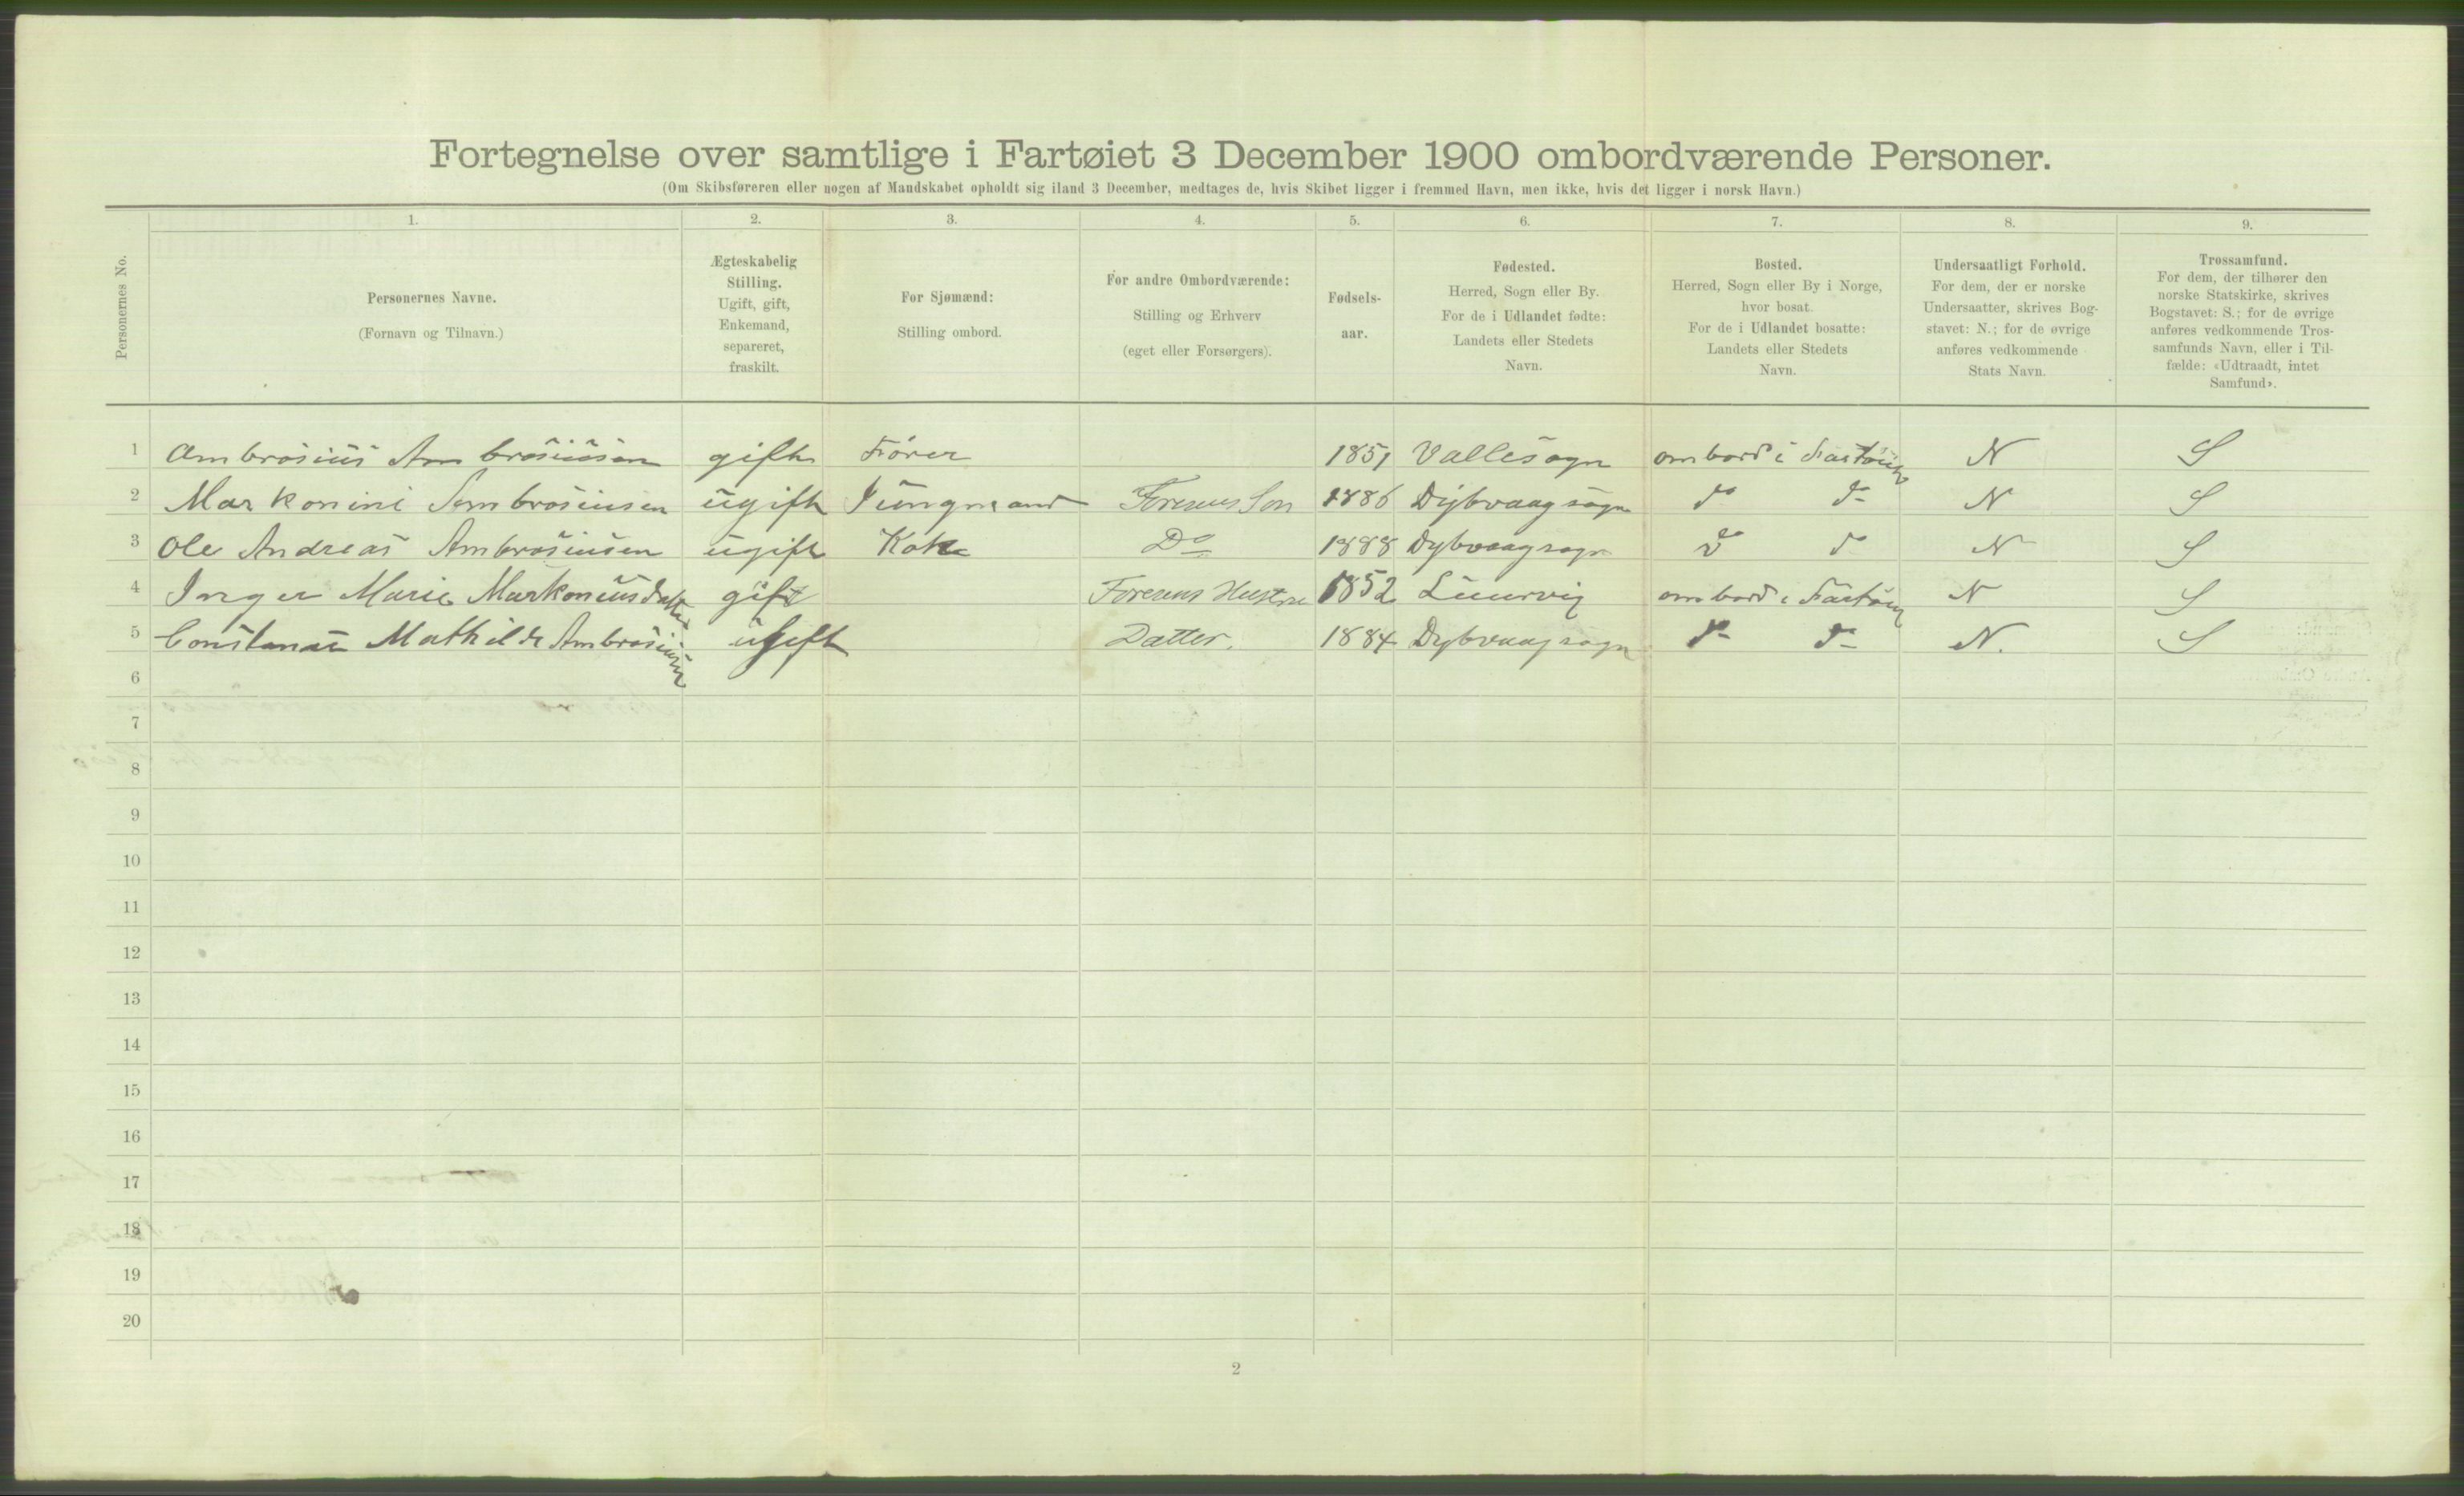 Fortegnelse over samtlige i Fartøiet 3 December 1900 ombordværende Personer.
(Om Skibsføreren eller nogen af Mandskabet opholdt sig iland 3 December, medtages de, hvis Skibet ligger i fremmed Havn, men ikke, hvis det ligger i norsk Havn.)
Personernes No.
1.
Personernes Navne.
(Fornavn og Tilnavn.)
2.
Ægteskabelig
Stilling.
Ugift, gift,
Enkemand,
separeret,
fraskilt.
3.
For Sjømænd:
Stilling ombord.
4.
For andre Ombordværende:
Stilling og Erhverv
(eget eller Forsørgers).
5.
Fødsels-
aar.
6.
Fødested.
Herred, Sogn eller By.
For de i Udlandet fødte:
Landets eller Stedets
Navn.
7.
Bosted.
Herred, Sogn eller By i Norge,
hvor bosat.
For de i Udlandet bosatte:
Landets eller Stedets
Navn.
8.
Undersaatligt Forhold.
For dem, der er norske
Undersaatter, skrives Bog-
stavet: N.; for de øvrige
anføres vedkommende
Stats Navn.
9.
Trossamfund.
For dem, der tilhører den
norske Statskirke, skrives
Bogstavet: S.; for de øvrige
anføres vedkommende Tros-
samfunds Navn, eller i Til-
fælde: «Udtraadt, intet
Samfund».
1 Ambrosius Ambrosiusen gift Fører 1851 Vallesogn ombord i Fartøiet N S
2 Markonini Ambrosiusen ugift Jungmand Førerens Søn 1886 Dybvaag sogn do do N S
3 Ole Andreas Ambrosiusen ugift Kok Do 1888 Dybvaag sogn do do N S
4 Inger Marie Markoniusdatter gift Førerens Hustru 1852 ombord i Fartøiet N S
5 Constanse Mathilde Ambrosiusen ugift Datter. 1884 Dybvaag sogn do do N. S
6
7
8
9
10
11
12
13
14
15
16
17
18
19
20
2